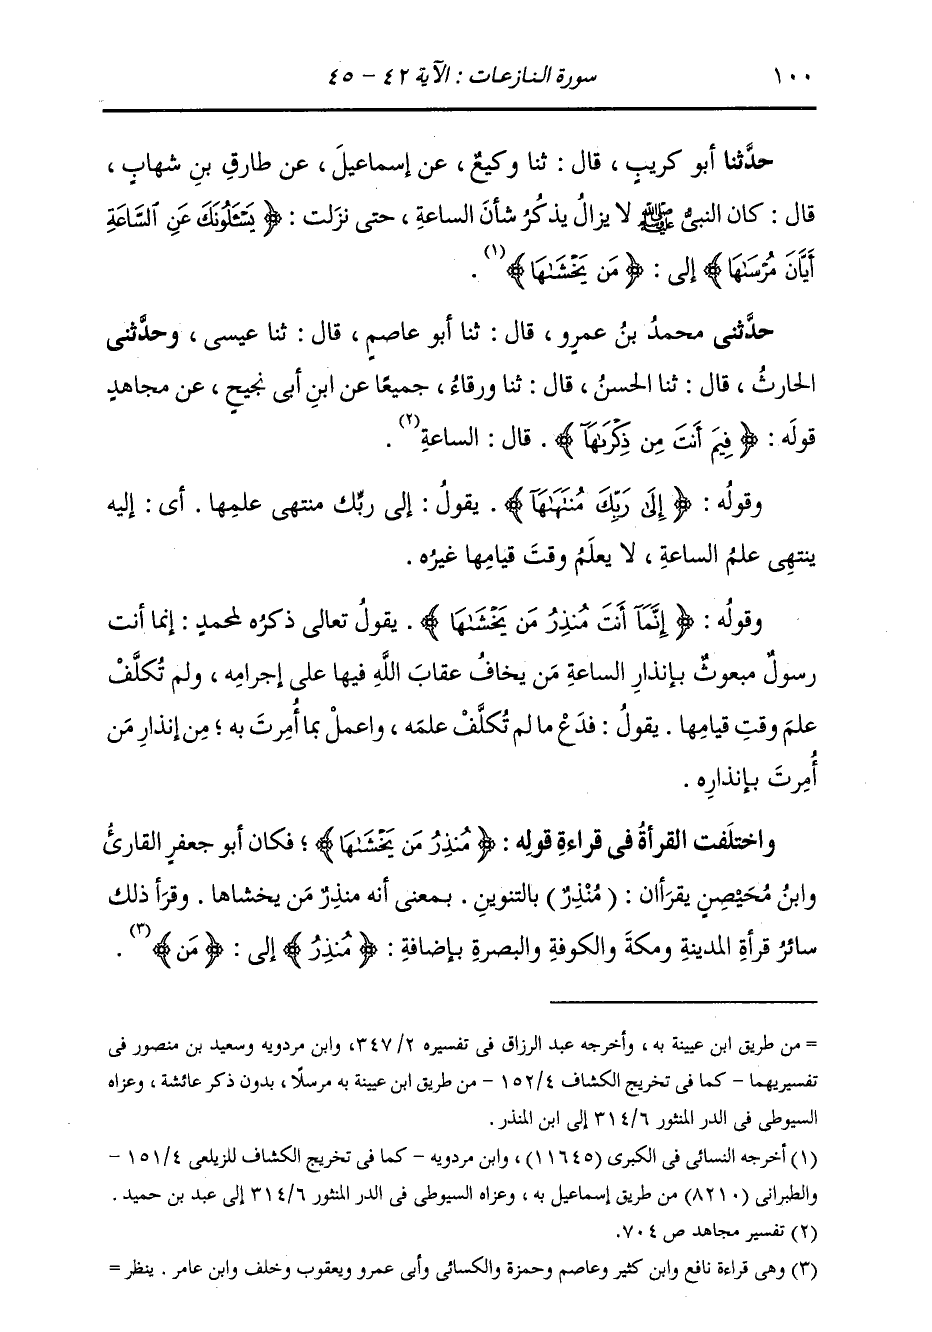 ١٠٠ سورة النازعات : الآية ٤٢ - ٤٥
حدَّثنا أبو كريبٍ ، قال : ثنا وكيعٌ ، عن إسماعيلَ ، عن طارقِ بنِ شهابٍ ،
قال : كان النبىُّ ﷺ لا يزالُ يذكُرُ شأنَ الساعةِ ، حتى نزَلت : ﴿ يَسْـَٔلُونَكَ عَنِ ٱلسَّاعَةِ
أَيَّانَ مُرْسَىٰهَا ﴾ إلى : ﴿ مَن يَخْشَىٰهَا ﴾(١) .
حدَّثنى محمدُ بنُ عمرٍو ، قال : ثنا أبو عاصمٍ ، قال : ثنا عيسى ، وحدَّثنى
الحارثُ ، قال : ثنا الحسنُ ، قال : ثنا ورقاءُ ، جميعًا عن ابنِ أبى نجيحٍ ، عن مجاهدٍ
قولَه : ﴿ فِيمَ أَنتَ مِن ذِكْرَىٰهَآ ﴾ . قال : الساعةِ(٢) .
وقولُه : ﴿ إِلَىٰ رَبِّكَ مُنتَهَىٰهَآ ﴾ . يقولُ : إلى ربِّك منتهى علمِها . أى : إليه
ينتهِى علمُ الساعةِ ، لا يعلَمُ وقتَ قيامِها غيرُه .
وقولُه : ﴿ إِنَّمَآ أَنتَ مُنذِرُ مَن يَخْشَىٰهَا ﴾ . يقولُ تعالى ذكرُه لمحمدٍ : إنما أنت
رسولٌ مبعوثٌ بإنذارِ الساعةِ مَن يخافُ عقابَ اللَّهِ فيها على إجرامِه ، ولم تُكلَّفْ
علمَ وقتِ قيامِها . يقولُ : فدَعْ ما لم تُكلَّفْ علمَه ، واعملْ بما أُمِرتَ به ؛ مِن إنذارِ مَن
أُمِرتَ بإنذارِه .
واختلَفت القرأةُ فى قراءةِ قولِه : ﴿ مُنذِرُ مَن يَخْشَىٰهَا ﴾ ؛ فكان أبو جعفرٍ القارئُ
وابنُ مُحَيْصِنٍ يقرَأان : ( مُنْذِرٌ ) بالتنوينِ . بمعنى أنه منذِرٌ مَن يخشاها . وقرَأ ذلك
سائرُ قرأةِ المدينةِ ومكةَ والكوفةِ والبصرةِ بإضافةِ : ﴿ مُنذِرُ ﴾ إلى : ﴿ مَن ﴾(٣) .
= من طريق ابن عيينة به ، وأخرجه عبد الرزاق فى تفسيره ٣٤٧/٢، وابن مردويه وسعيد بن منصور فى
تفسيريهما - كما فى تخريج الكشاف ١٥٢/٤ - من طريق ابن عيينة به مرسلًا ، بدون ذكر عائشة ، وعزاه
السيوطى فى الدر المنثور ٣١٤/٦ إلى ابن المنذر .
(١) أخرجه النسائى فى الكبرى (١١٦٤٥) ، وابن مردويه - كما فى تخريج الكشاف للزيلعى ١٥١/٤ -
والطبرانى (٨٢١٠) من طريق إسماعيل به ، وعزاه السيوطى فى الدر المنثور ٣١٤/٦ إلى عبد بن حميد .
(٢) تفسير مجاهد ص ٧٠٤.
(٣) وهى قراءة نافع وابن كثير وعاصم وحمزة والكسائى وأبى عمرو ويعقوب وخلف وابن عامر . ينظر =